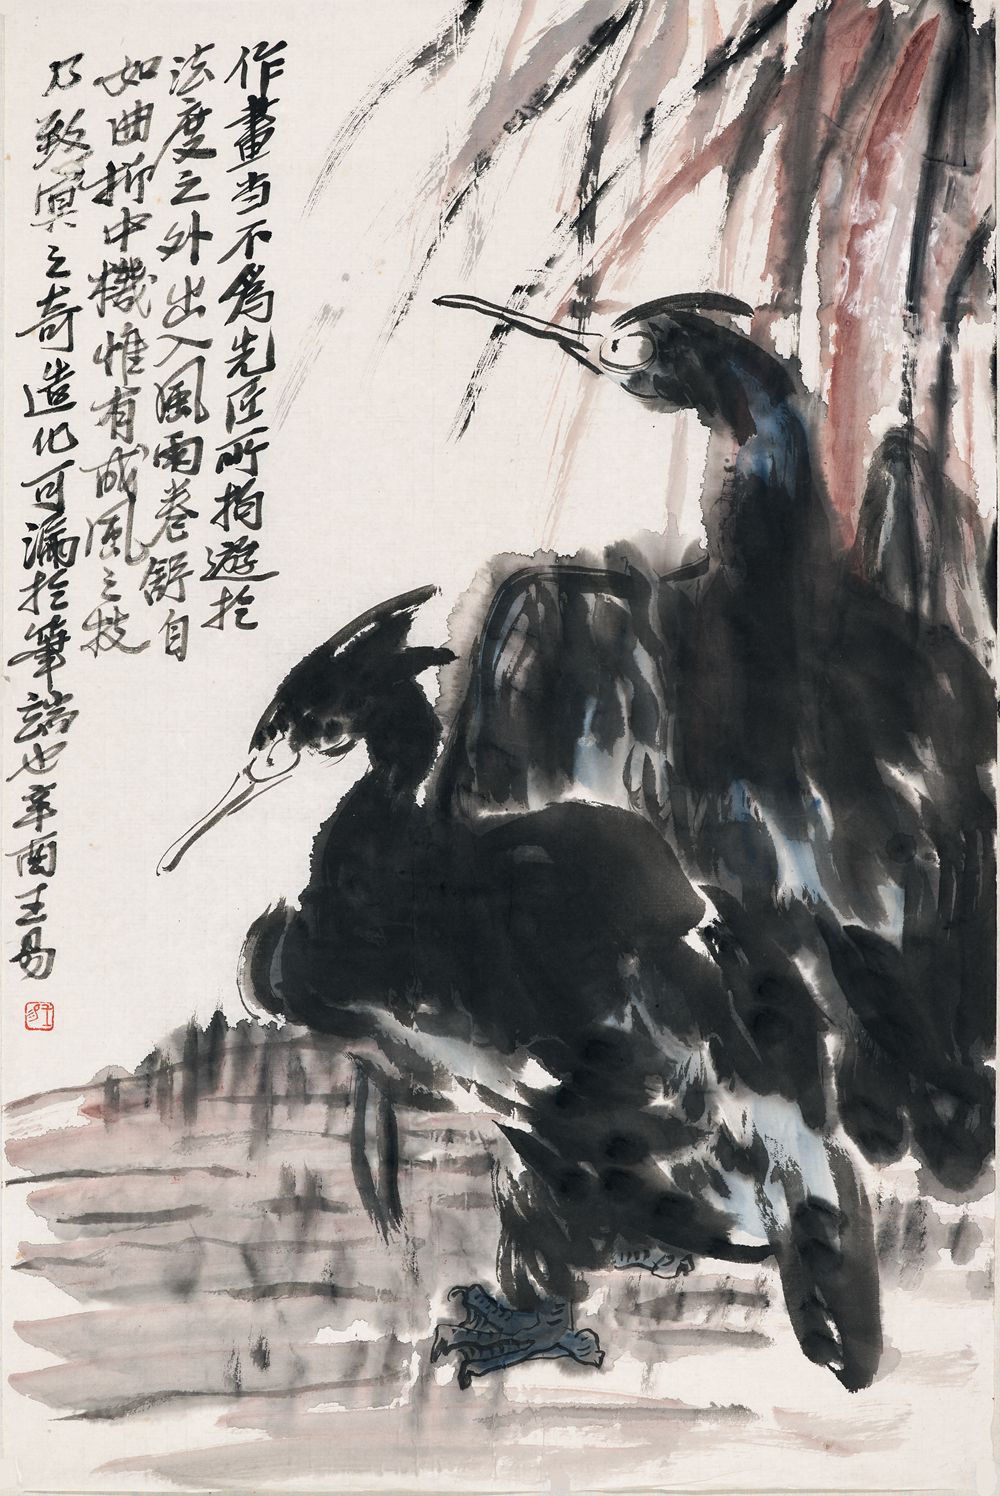 作畫当不為先匠所拘遊扵
法度之外出入風雨卷舒自
如曲折中機惟有成風之技
乃致冥之奇造化可漏扵筆端也辛酉王易